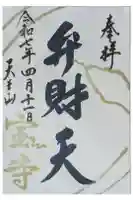 奉拝
弁財天
令和七年四月十二日
天王山
宝寺